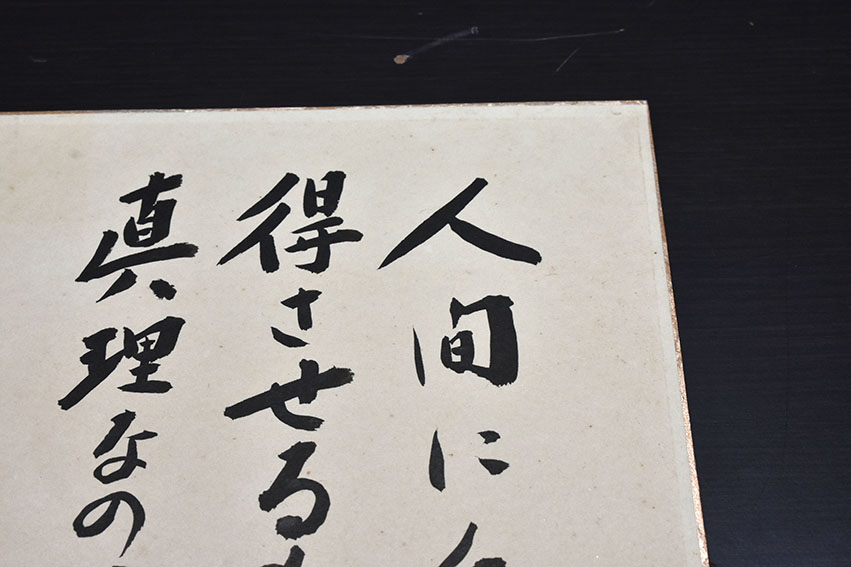 人間に
得させる
真理なの